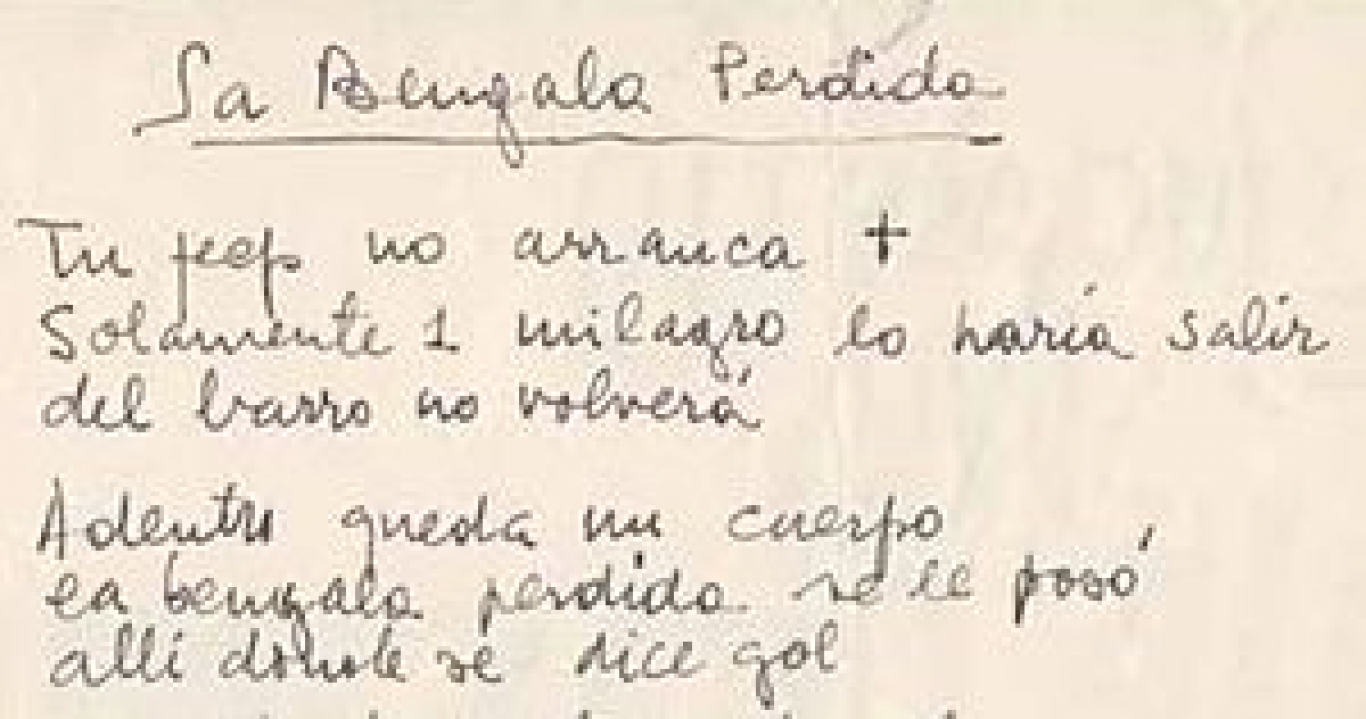 La Bengala Perdida
Tu jeep no arranca +
Solamente 1 milagro lo haría salir
del barro no volverá
Adentro queda un cuerpo
la bengala perdida se le posó
allí donde se dice gol